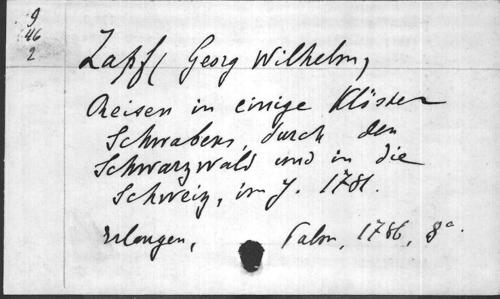 9
46
2
Zapf, Georg Wilhelm,
Reisen in einige Klöster
Schwabens, durch den
Schwarzwald und in die
Schweiz, im J. 1781.
Erlangen, Palm, 1786, 8°.